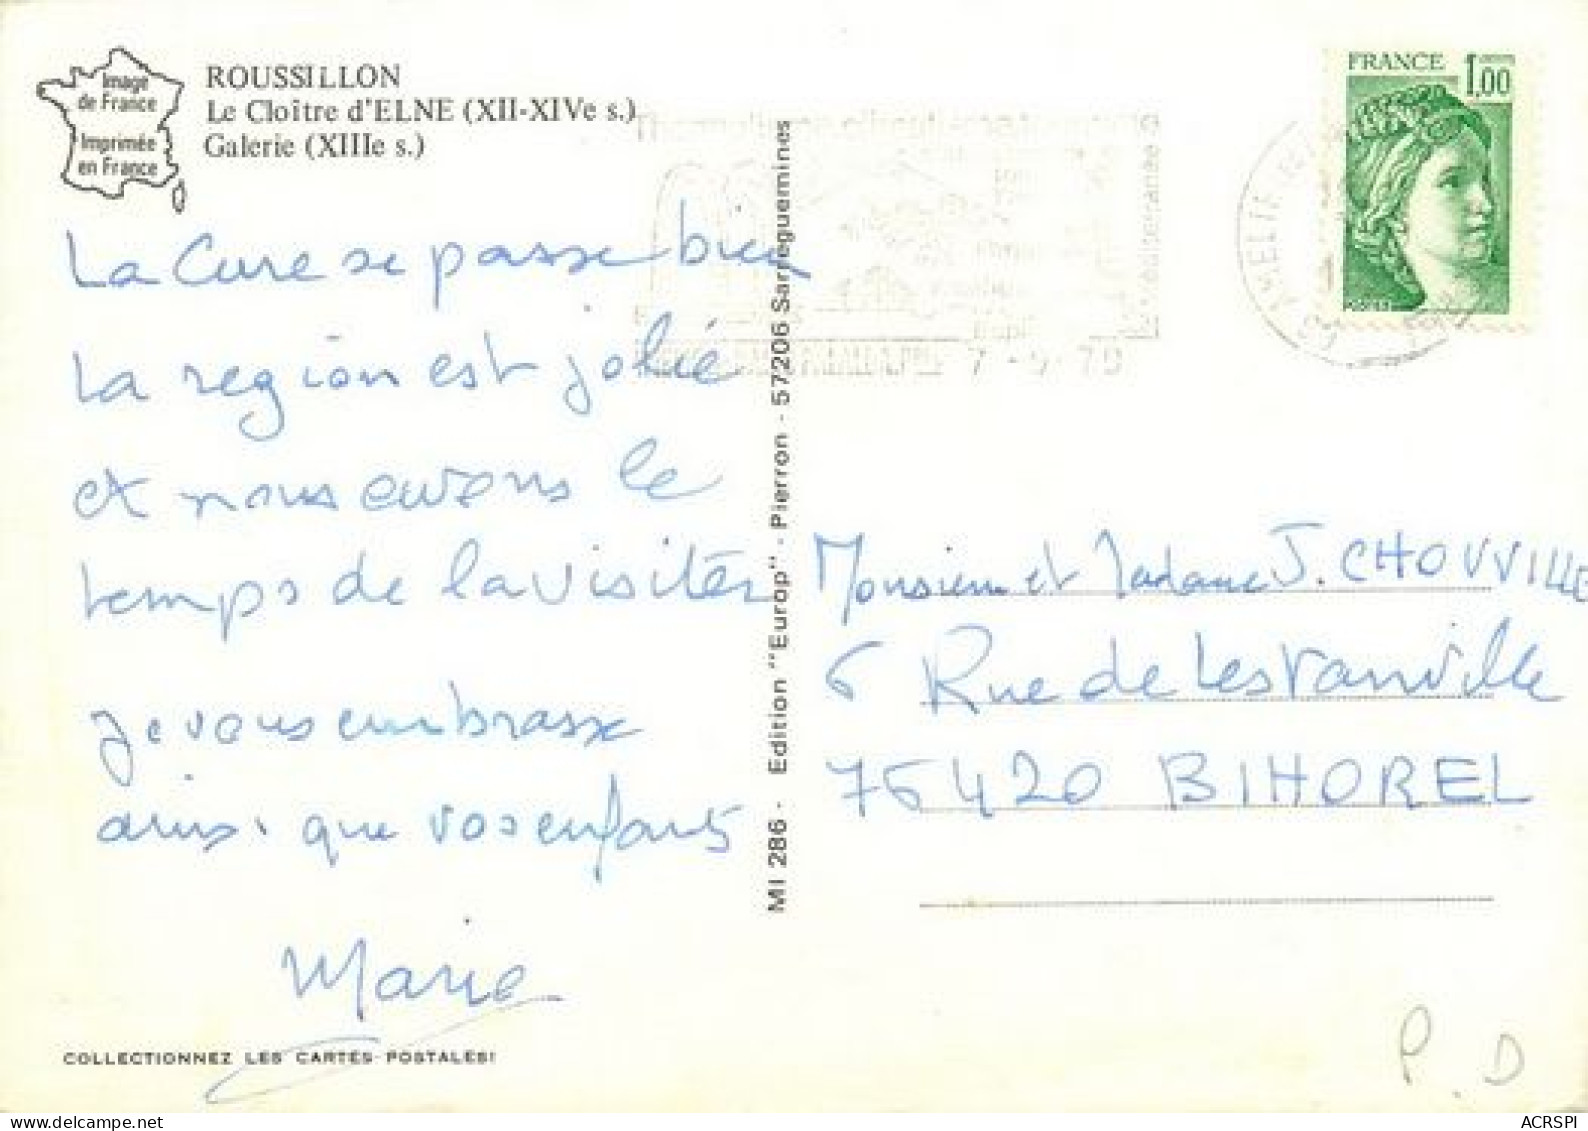 Image
de France
Imprimée
en France
ROUSSILLON
Le Cloître d'ELNE (XII-XIVe s.)
Galerie (XIIIe s.)
La Cure se passe bien
la région est jolie
et nous avons le
temps de la visiter
je vous embrasse
ainsi que vos enfants
Marie
COLLECTIONNEZ LES CARTES POSTALES!
MI 286 - Edition "Europ" - Pierron - 57206 Sarreguemines
7 - 5 - 79
FRANCE 1,00
Monsieur et Madame J. CHOUVVILLE
6 Rue de Lestanville
76420 BIHOREL
P. D
ACRSPI